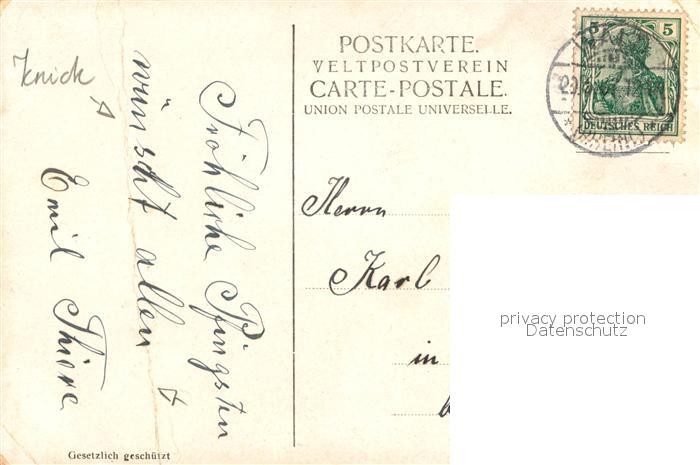 Knick
Fröhliche Pfingsten
wünscht allen
Emil Thiere
Gesetzlich geschützt
POSTKARTE.
VELTPOSTVEREIN
CARTE-POSTALE.
UNION POSTALE UNIVERSELLE.
5 5
DEUTSCHES REICH
Herrn
Karl
in
privacy protection
Datenschutz